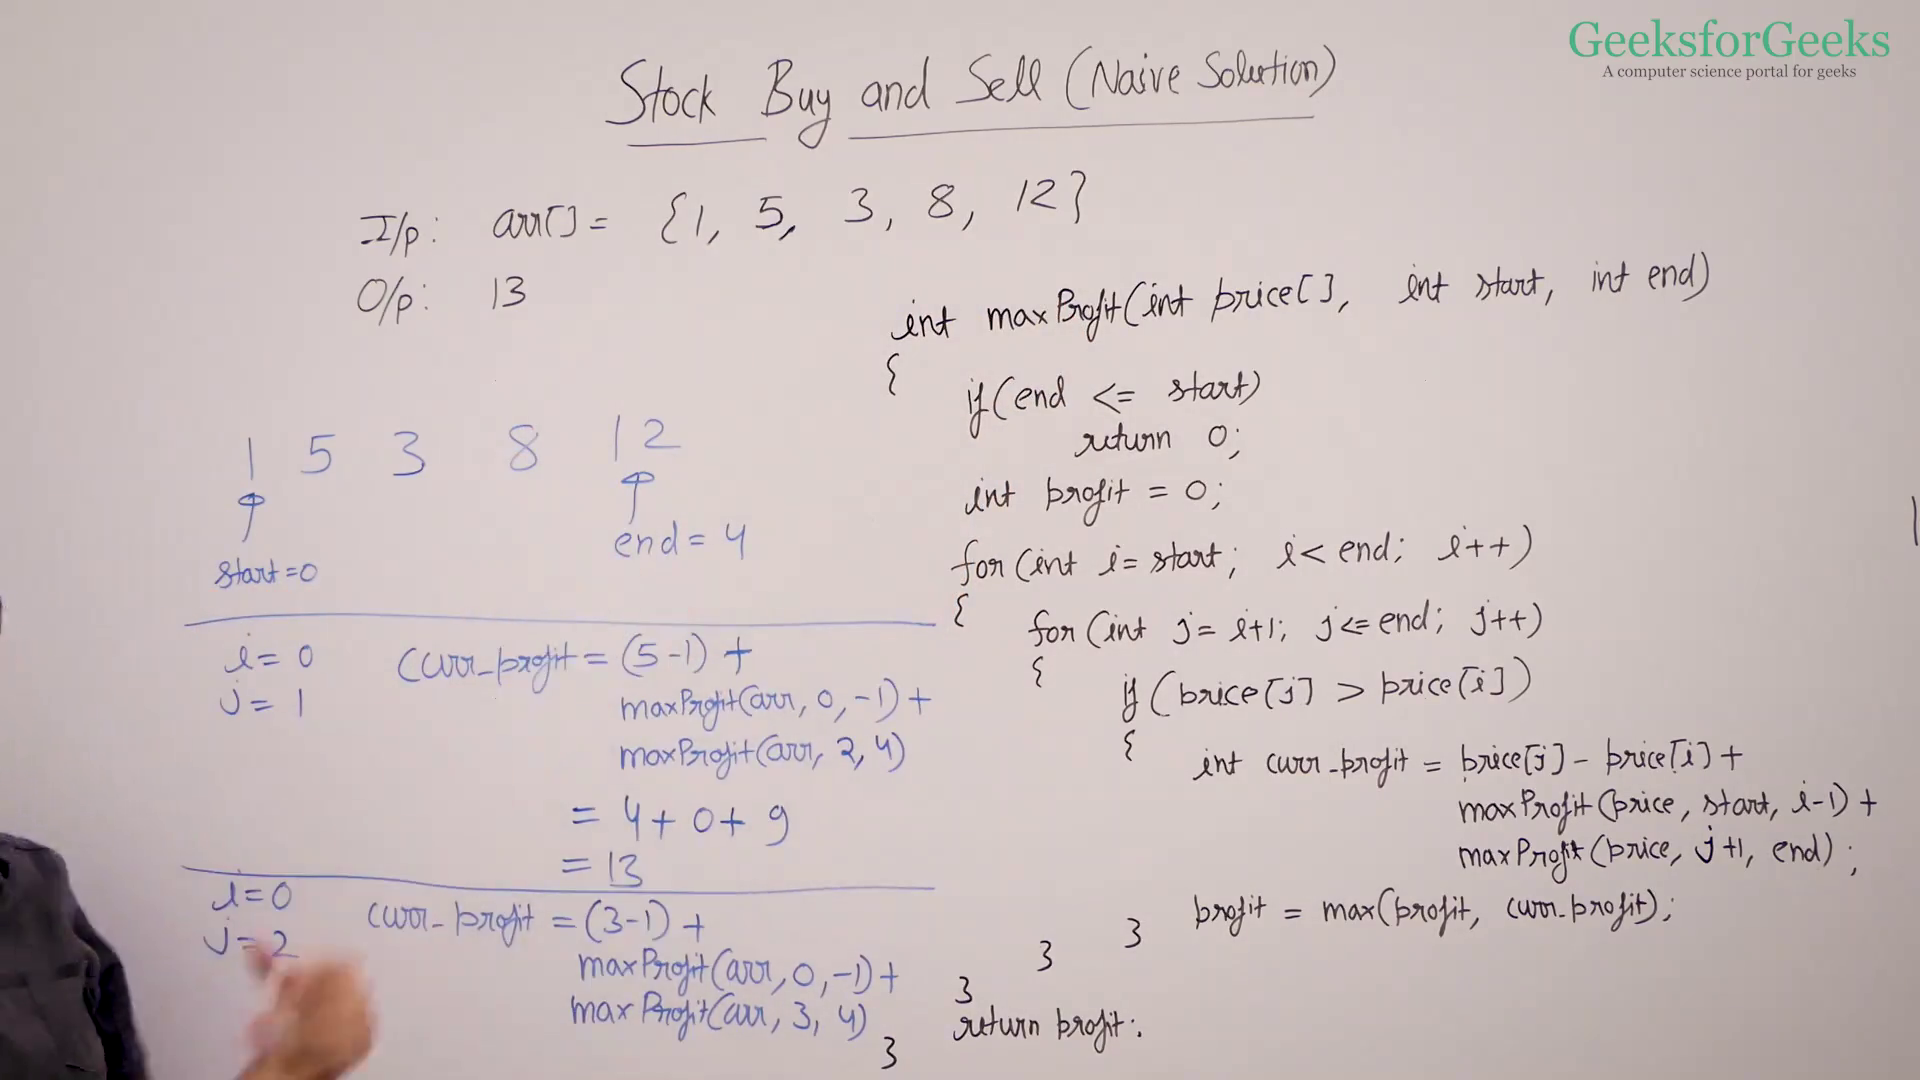 GeeksforGeeks
A computer science portal for geeks
Stock Buy and Sell (Naive Solution)
I/p: arr[] = {1, 5, 3, 8, 12}
O/p: 13
1 5 3 8 12
start=0
end = 4
i = 0
j = 1
curr_profit = (5-1) +
maxProfit(arr, 0, -1) +
maxProfit(arr, 2, 4)
= 4 + 0 + 9
= 13
i=0
j=2
curr_profit = (3-1) +
maxProfit(arr, 0, -1) +
maxProfit(arr, 3, 4)
int maxProfit(int price[], int start, int end)
{
if(end <= start)
return 0;
int profit = 0;
for(int i= start; i< end; i++)
{
for(int j= i+1; j<=end; j++)
{
if(price[j] > price[i])
{
int curr_profit = price[j] - price[i] +
maxProfit(price, start, i-1) +
maxProfit(price, j+1, end);
profit = max(profit, curr_profit);
}
}
}
return profit;
}